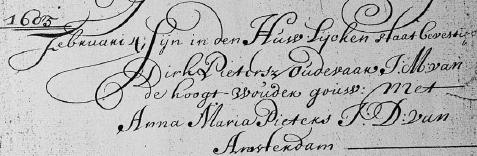 1685
Februarij, Sijn in den Huw-Lijcken staat bevesti
Dirk Pietersz Oudevaar J:M: van
de hoogt-wouder gouw: Met
Anna Maria Pieters J:D: van
Amsterdam